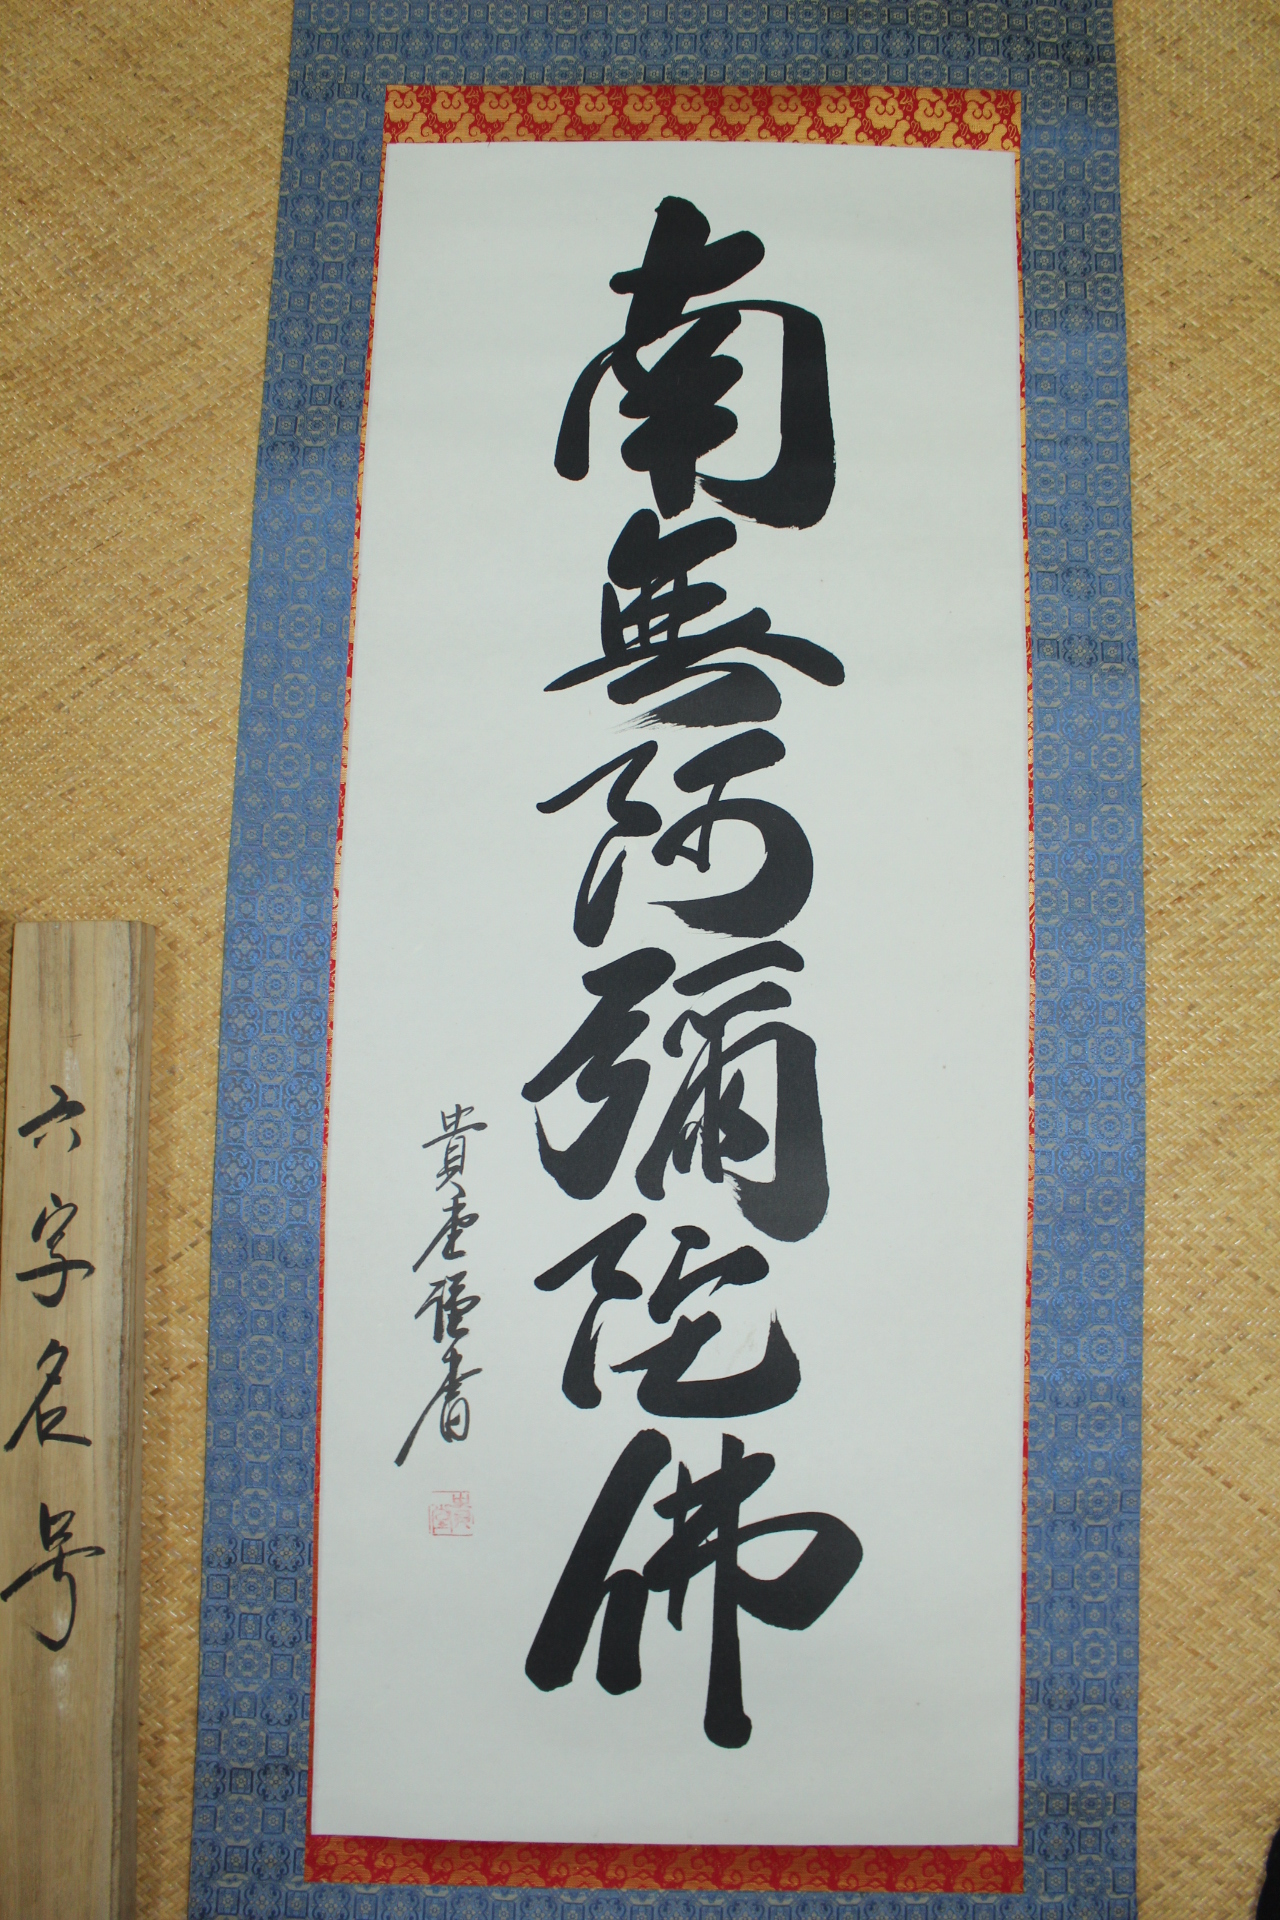 南無阿彌陀佛
貴堂謹書
貴堂
六字名号